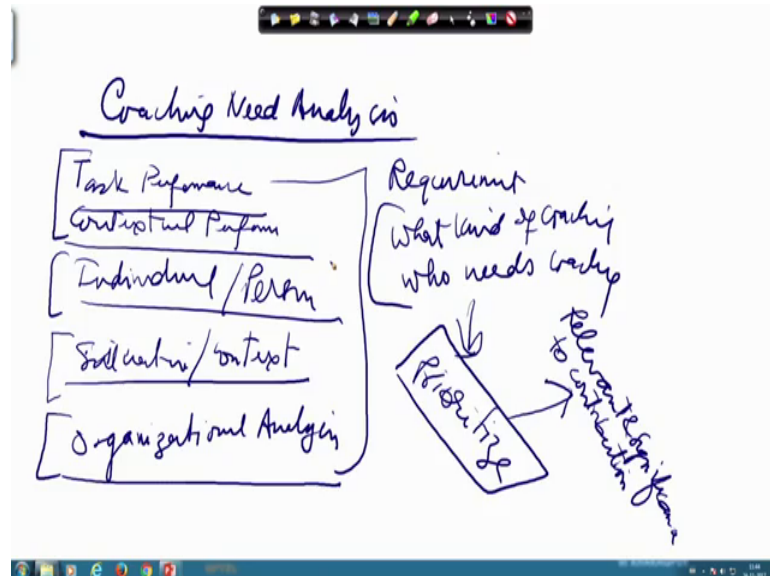 Coaching Need Analysis
Task Performance
Contextual Perform
Individual/Person
Situation/Context
Organizational Analysis
Requirement
What kind of coaching
who needs coaching
Prioritize
Relevant & Significance
to contribution